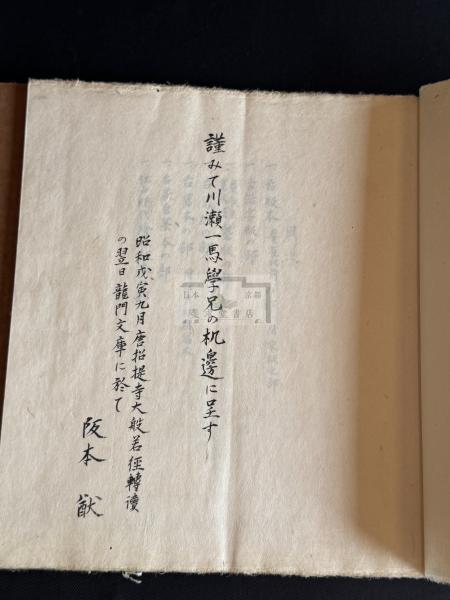 謹みて川瀬一馬學兄の机邊に呈す
昭和戊寅九月唐招提寺大般若經轉讀
の翌日龍門文庫に於て
阪本猷